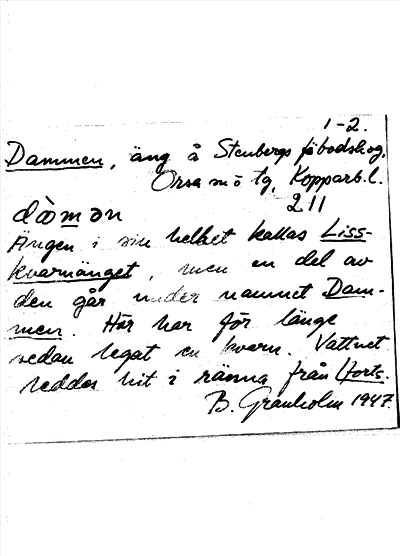 1-2.
Dammen, äng å Stenbergs fäbodskog,
Orsa m o tg, Kopparb.l.
211
dàmən
Ängen i sin helhet kallas Liss-
kvarnänget, men en del av
den går under namnet Dam-
men. Här har för länge
sedan legat en kvarn. Vattnet
leddes hit i ränna från (forts.
B. Granholm 1947.